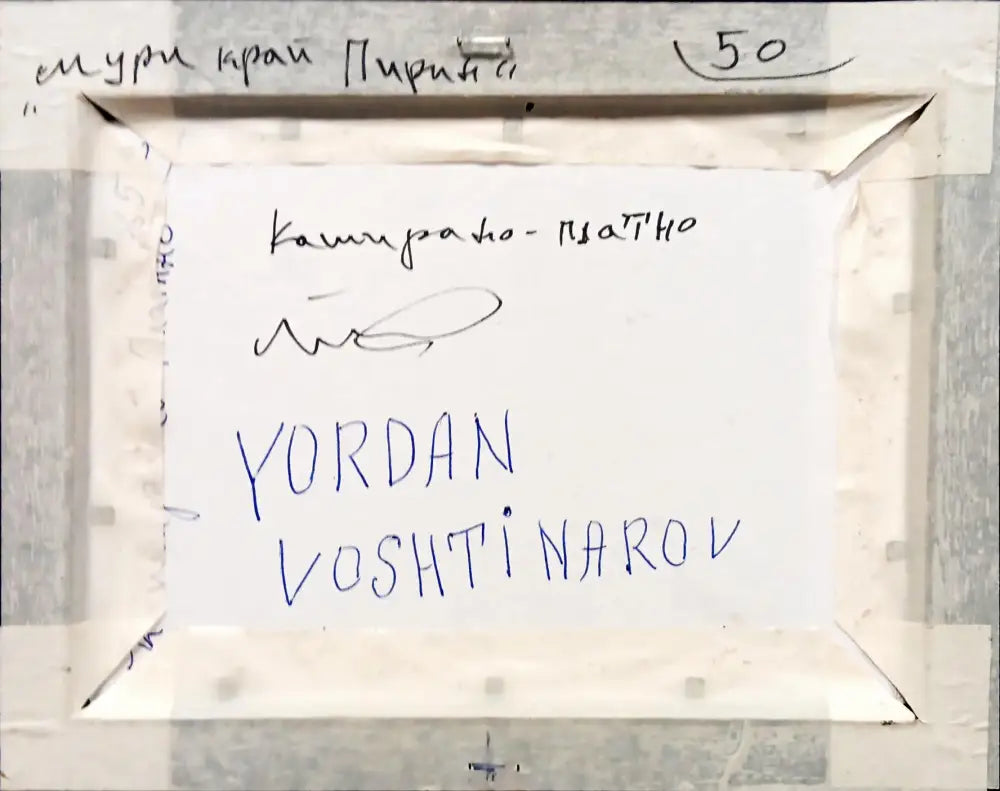 „Мури край Пирин“ 50
Каширано - платно
YORDAN
VOSHTiNAROV